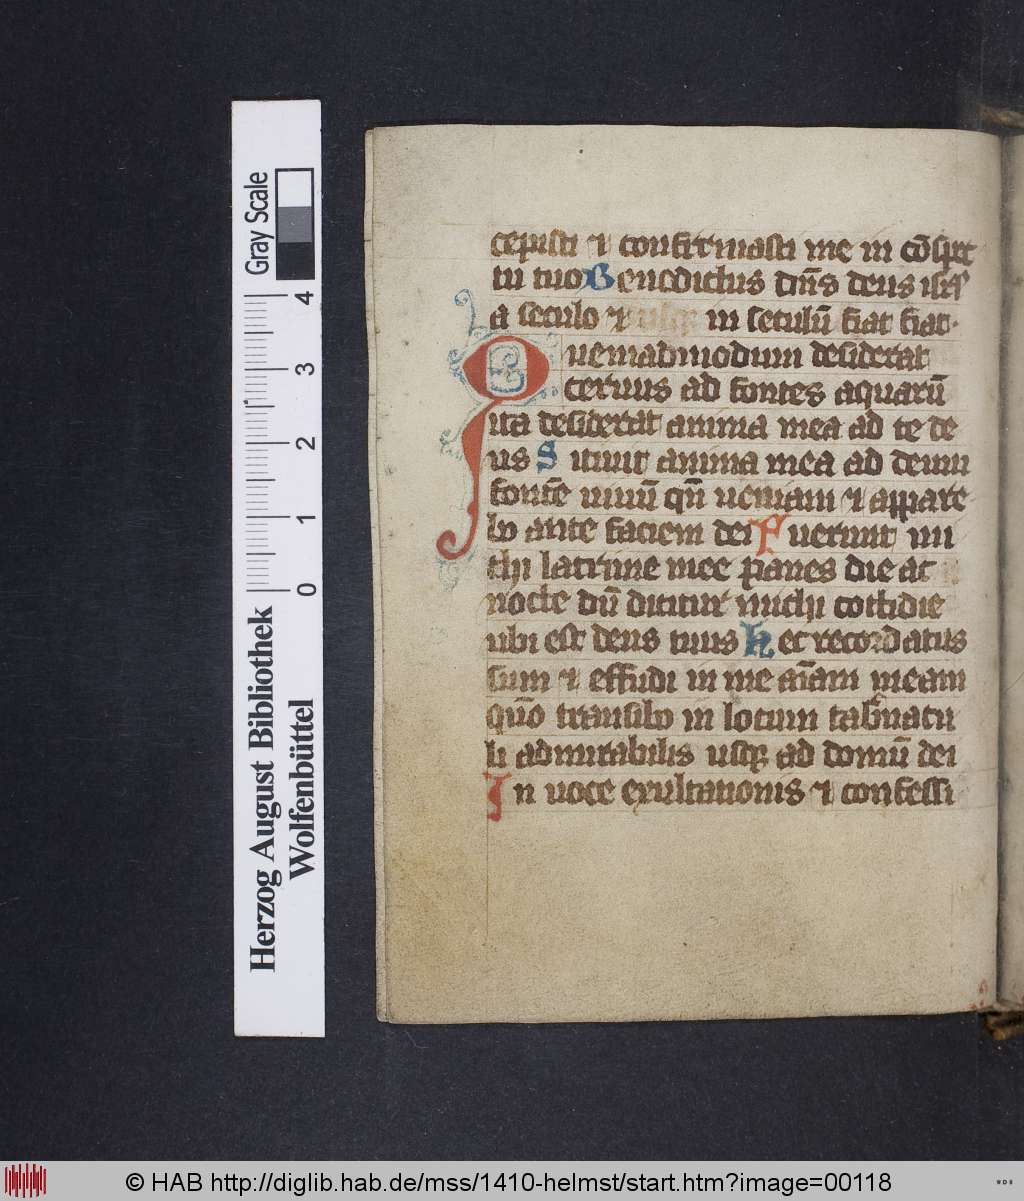 cepisti ⁊ confirmasti me in cōspec
tu tuo Benedictus dn̄s deus isrl
a seculo ⁊ usq in seculū fiat fiat·
Quemadmodum desiderat
ceruus ad fontes aquarū
ita desiderat anima mea ad te de
us Sitiuit anima mea ad deum
fontē uiuū qn̄ ueniam ⁊ appare
bo ante faciem dei Fuerunt mi
chi lacrime mee panes die ac
nocte dū dicitur michi cottidie
ubi est deus tuus Hec recordatus
sum ⁊ effudi in me aīam meam
qm̄ transibo in locum tab̄nacu
li admirabilis usq ad domū dei
In uoce exultationis ⁊ confessi
Gray Scale
4
3
2
1
0
Herzog August Bibliothek
Wolfenbüttel
© HAB http://diglib.hab.de/mss/1410-helmst/start.htm?image=00118